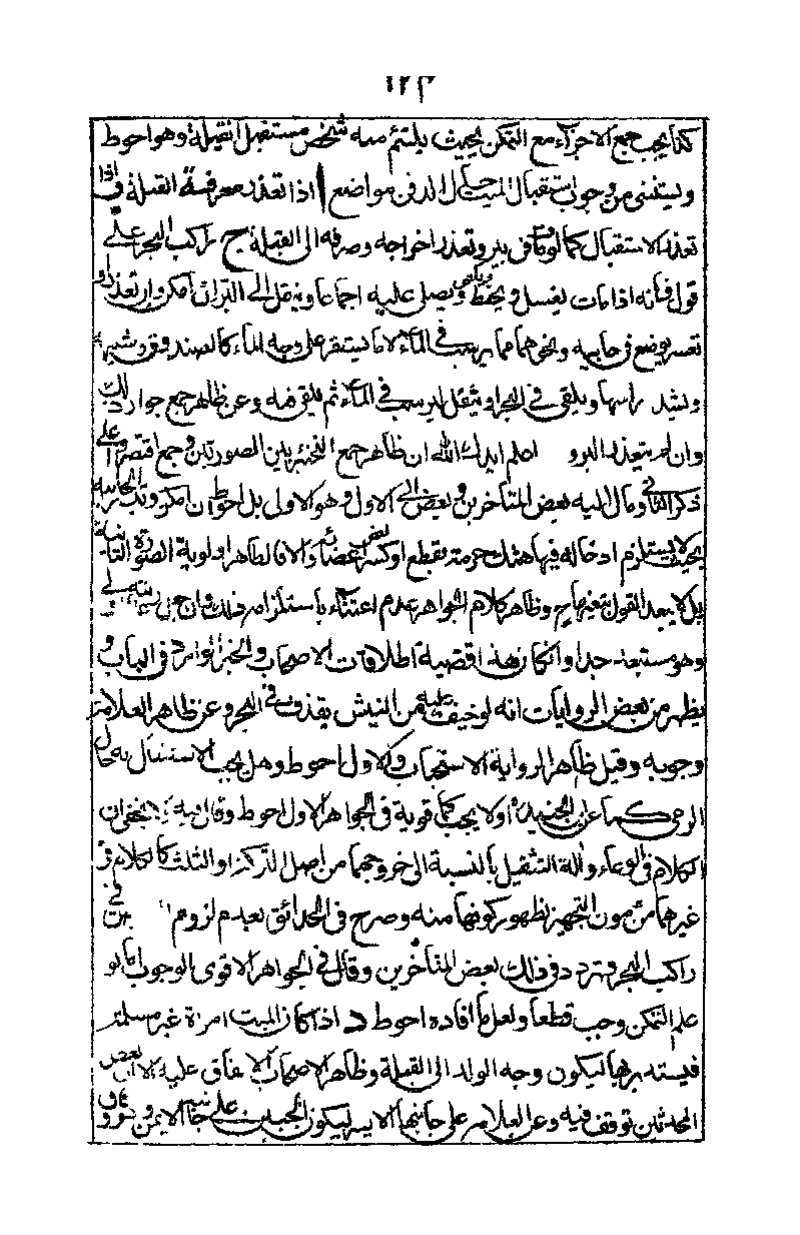 ١٢٣
كذا يجب جمع الاجزاء مع التمكن بحيث يلتئم منه شخص مستقبل القبلة وهو احوط
ويستثنى من وجوب استقبال الميت حال الدفن مواضع ا اذا تعذر معرفة القبلة ب اذا
تعذر الاستقبال كما لو مات في بئر وتعذر اخراجه وصرفه الى القبلة ج راكب البحر على
قول فانه اذا مات يغسل ويحنط ويكفن ويصلى عليه اجماعا وينقل الى البر ان امكن وان تعذر او
تعسر يوضع في خابية ونحوها مما يرسب في الماء لا ما يستقر على وجه الماء كالصندوق وشبهه
ويشد راسها ويلقى في البحر او يثقل ليرسب في الماء ثم يلقى فيه وعن ظاهر جمع جواز ذلك
وان لم يتعذر البر و اعلم ايدك الله ان ظاهر جمع التخيير بين الصورتين وجمع اقتصروا على
ذكر الثاني ومال اليه بعض المتأخرين وبعض الى الاول وهو الاولى بل احوط ان امكن وتب الخابية
بحيث لا يستلزم ادخاله فيها هتك حرمته بقطع او كسر بعض اعضائه والا فالظاهر اولوية الصورة الثانية
بل لا يبعد القول بتعينها ح وظاهر كلام الجواهر عدم اعتناء باستلزامه ذلك وان
وهو مستبعد جدا وان كان هذا قضية اطلاقات الاصحاب والخبر الوارد في الباب و
يظهر من بعض الروايات انه لو خيف عليه من النبش يقذف في البحر وعن ظاهر العلامة
وجوبه وقيل ظاهر الرواية الاستحباب والاول احوط وهل يجب الاستقبال به حال
الرمي كما عن الجنيد او لا يجب كما قوية في الجواهر الاول احوط وقال فيه لا يخفى ان
الكلام في الوعاء وآلة التثقيل بالنسبة الى خروجهما من اصل التركة او الثلث كالكلام في
غيرهما من مون التجهيز لظهور كونها منه وصرح في الحدائق بعدم لزوم في
راكب البحر وتردد في ذلك بعض المتأخرين وقال في الجواهر الاقوى الوجوب اما لو
علم التمكن وجب قطعا ولعل ما افاده احوط د اذا كان الميت امراة غير مسلمة
فيستدبر بها ليكون وجه الولد الى القبلة وظاهر الاصحاب الاتفاق عليه الا ان بعض
المحدثين توقف فيه وعن العلامة على جانبها الايسر ليكون الجنين على جانبه الايمن و